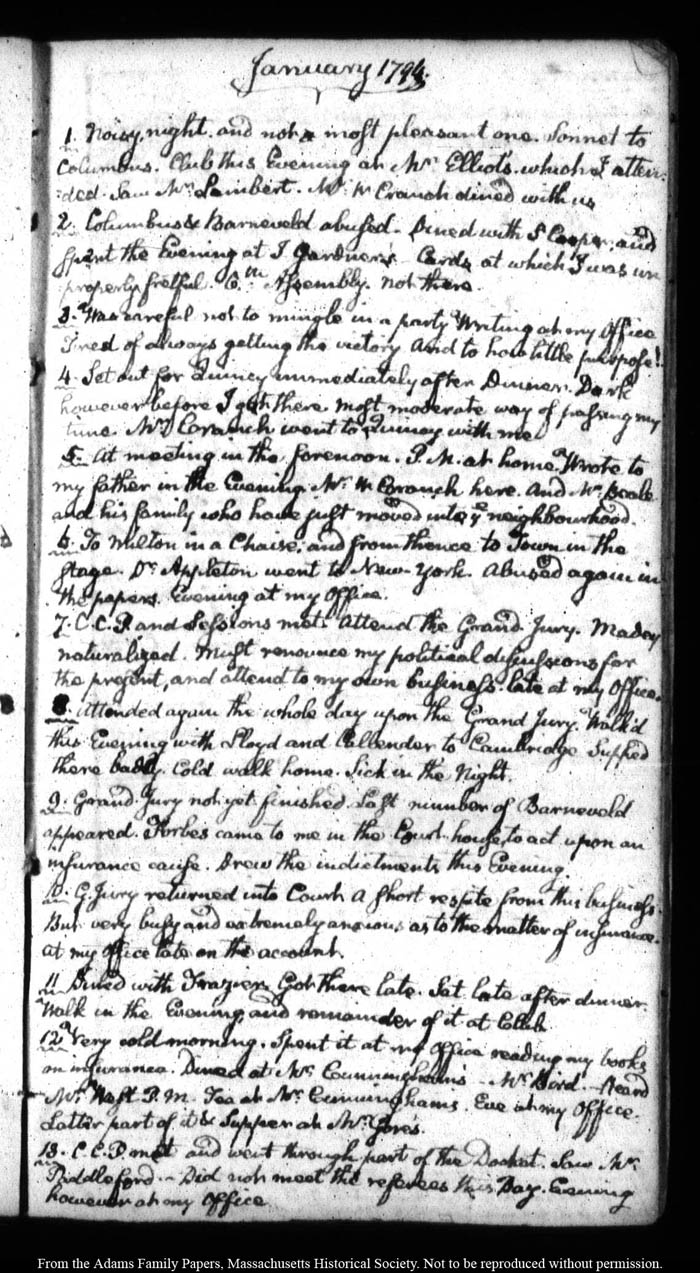 January 1794.
1. Noisy, night. and not a most pleasant one. Sonnet to
Columbus. Club this Evening at Mr. Elliot's. which I atten-
:ded. Saw Mr. Lambert. Mr. W Cranch dined with us
2. Columbus & Barneveld abused. Dined with S Cooper, and
spent the Evening at J. Gardner's. Cards, at which I was un
properly fretful. 6th. Assembly. not there.
3. Was careful not to mingle in a party. Writing at my Office
Tired of always getting the victory And to how little purpose!
4. Set out for Quincy immediately after Dinner. Dark
however before I got there. Most moderate way of passing my
time. Cranch went to Quincy with me
5. At meeting in the forenoon. P.M. at home. Wrote to
my father in the Evening. Mr. W Cranch here. And Mr. Beale
and his family who have just moved into ye. neighbourhood.
6. To Milton in a Chaise; and from thence to Town in the
stage. Dr. Appleton went to New-York. Abused again in
the papers. Evening at my Office.
7. C.C.P. and Sessions met. Attend the Grand Jury.
naturalized. Must renounce my political discussions for
the present, and attend to my own business. late at my Office.
8. Attended again the whole day upon the Grand Jury. Walk'd
this Evening with Lloyd and Callender to Cambridge Supped
there badly. Cold walk home. Sick in the Night.
9. Grand Jury not yet finished. Last number of Barneveld
appeared. Forbes came to me in the Court-house, to act upon an
insurance cause. Drew the indictments this Evening.
10. G. Jury returned into Court. A short respite from this business.
But very busy and extremely anxious as to the matter of insurance.
At my Office late on the account.
11. Dined with Frazier. Got there late. Set late after dinner.
Walk in the Evening, and remainder of it at Club.
12. Very cold morning. Spent it at my Office reading my books
on insurance. Dined at Mr. Cunningham's. Mr. Bird. Heard
Mr. West P.M. Tea at Mr. Cunninghams. Eve at my Office.
Latter part of it & Supper at Mr. Gores.
13. C.C.P. met and went through part of the Docket. Saw Mr.
Biddleford. Did not meet the referees this Day. Evening
however at my Office
From the Adams Family Papers, Massachusetts Historical Society. Not to be reproduced without permission.